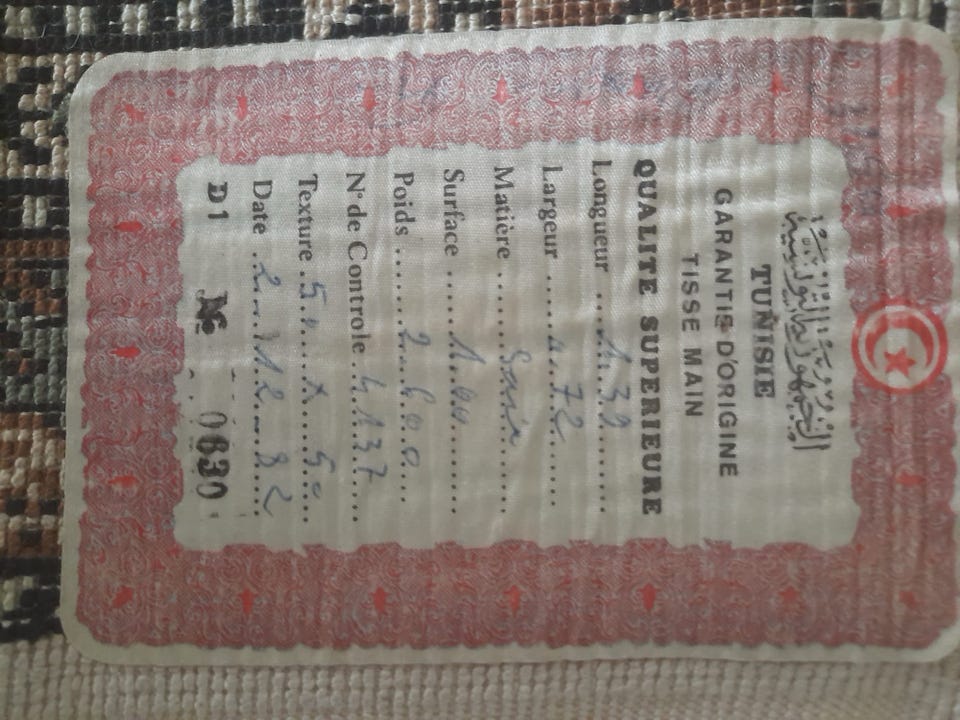 الجمهورية التونسية
TUNISIE
GARANTIE D'ORIGINE
TISSE MAIN
QUALITE SUPERIEURE
Longueur ....1.39........
Largeur ........0.72......
Matière .......Soie.......
Surface ......1.00..........
Poids ........2.600...
N° de Controle ..4.1137....
Texture .50....x...50...
Date ..2...12...82
D1 № 0630